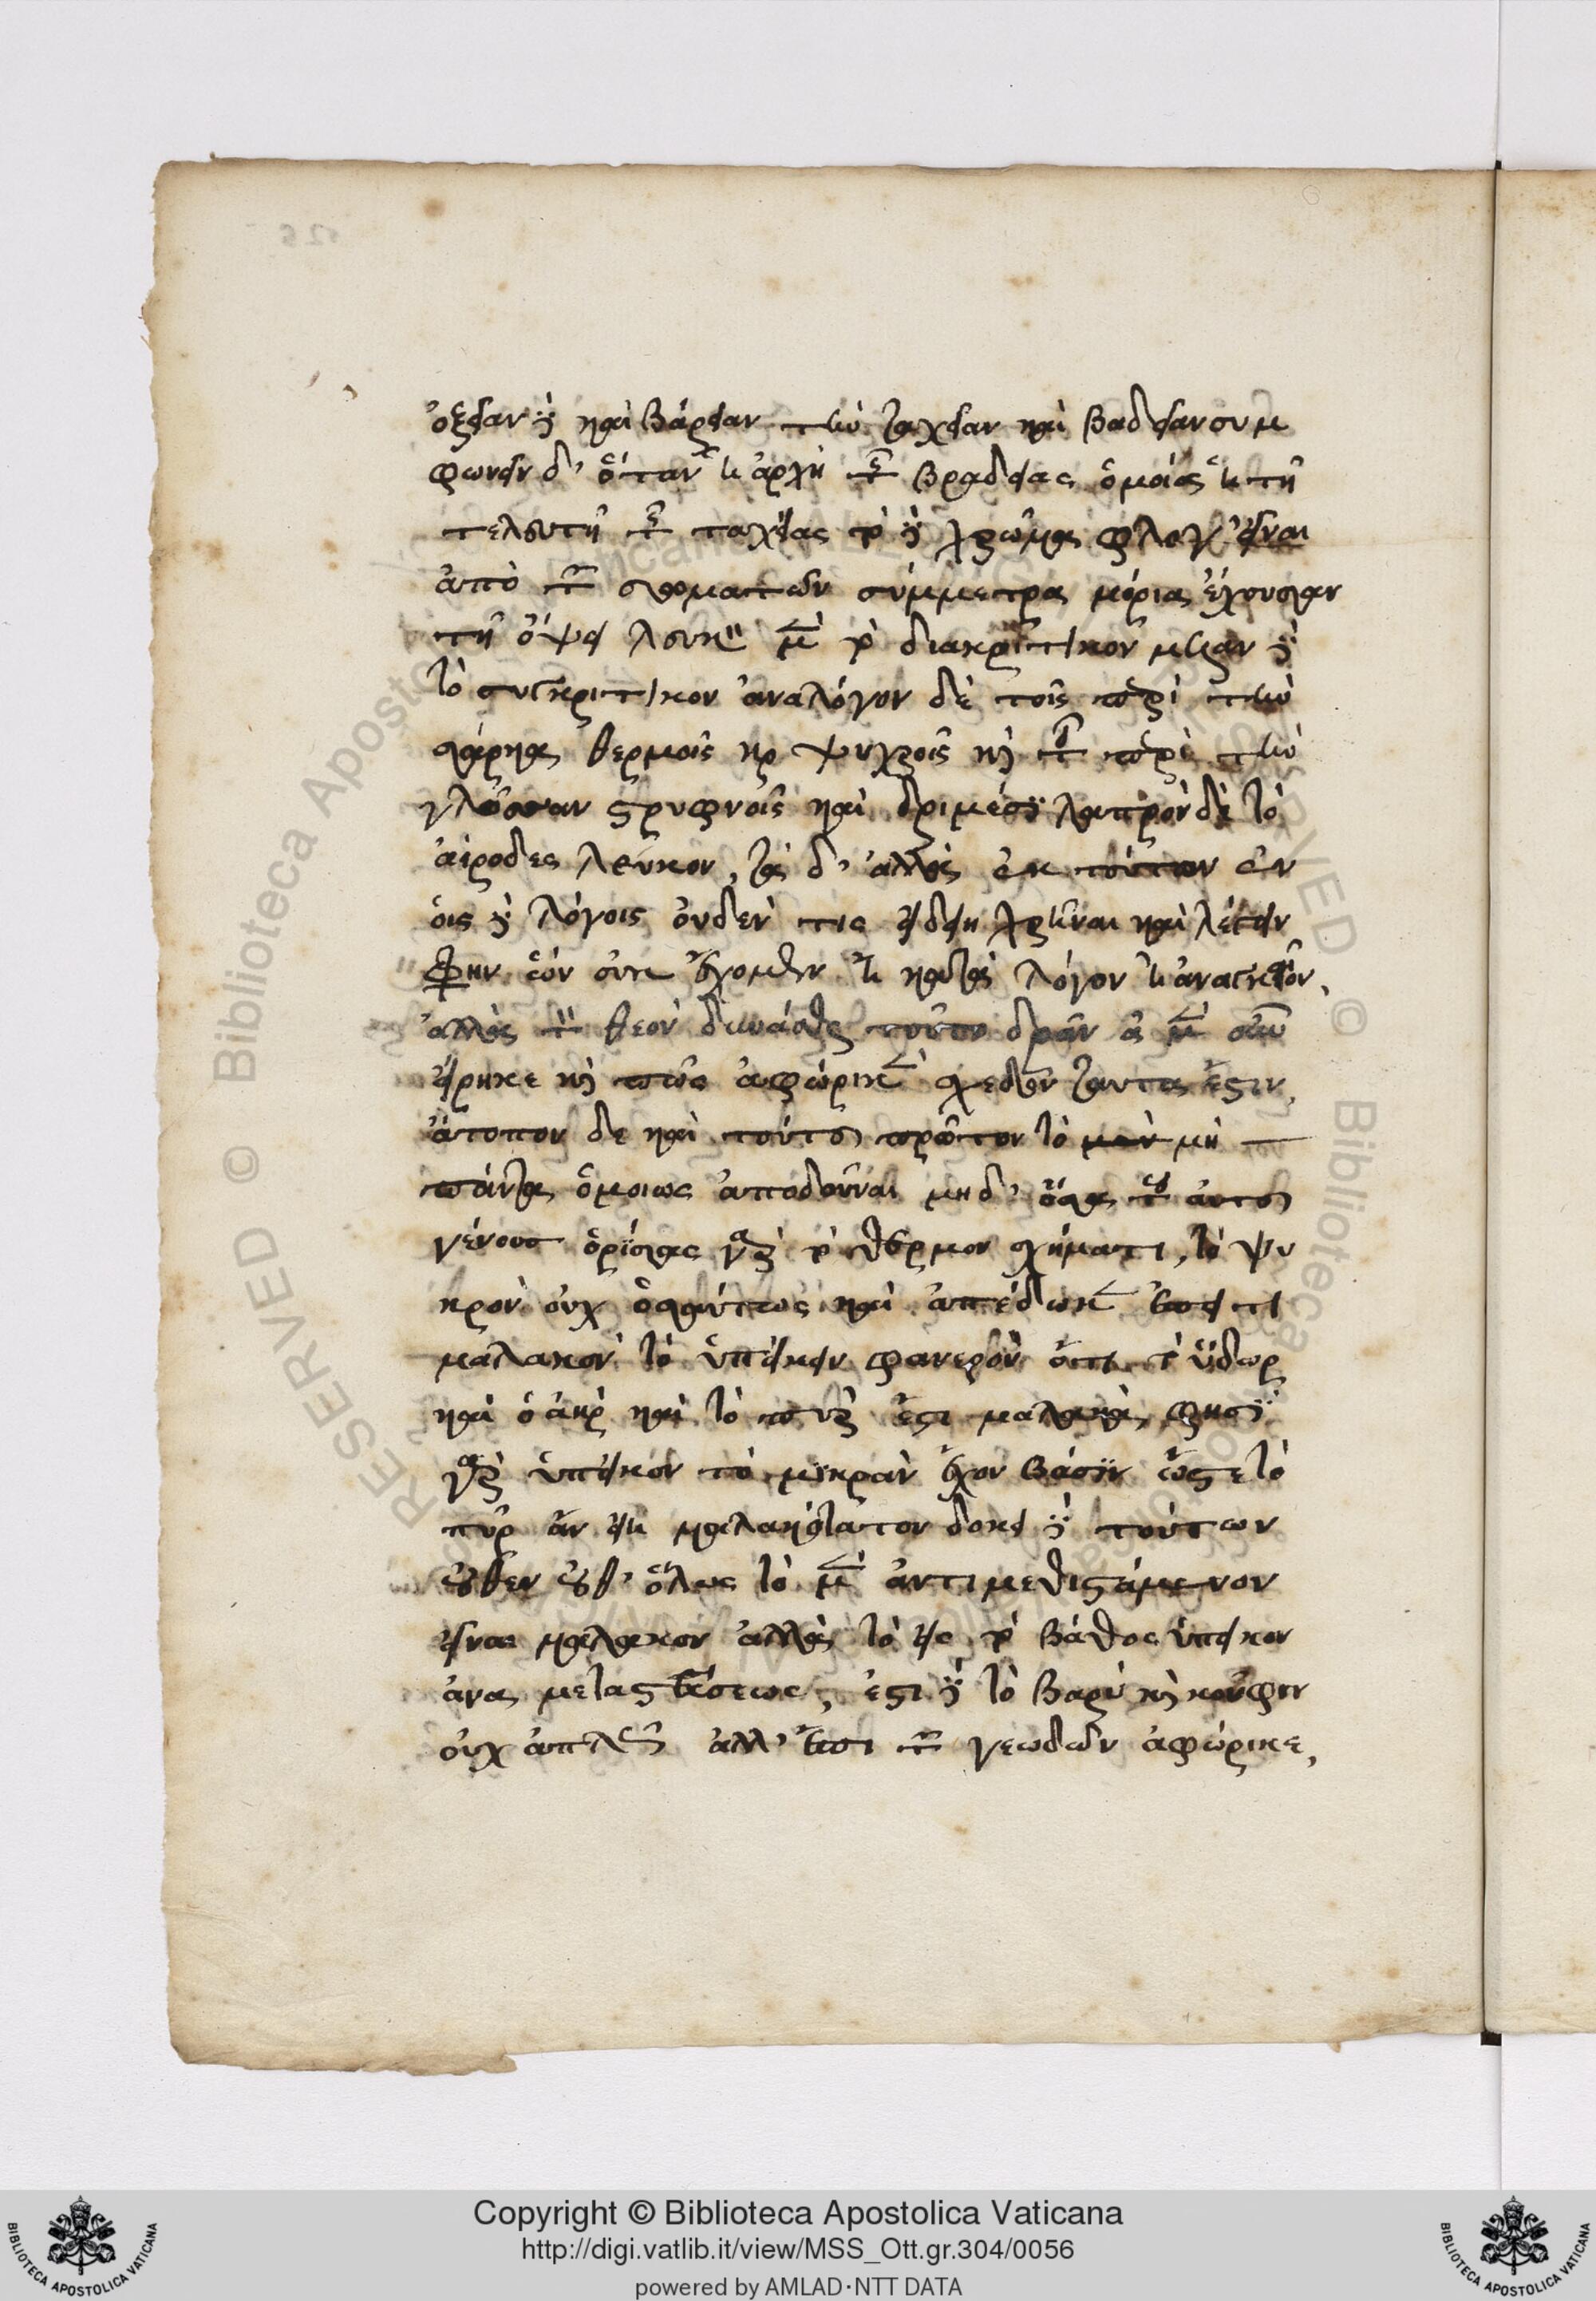 ὀξεῖαν δὲ καὶ βαρεῖαν τὴν ταχεῖαν καὶ βαδεῖαν συμ
φωνεῖν δ' ὅταν ἡ ἀρχὴ τῆς βραδείας ὁμοία ἦ τῆ
τελευτῆ τῆς ταχείας τὸ δὲ χρῶμα φλόγ' εἶναι
ἀπὸ τῶν σωμάτων σύμμετρα μόρια ἔχουσαν
τῆ ὄψει λευκὸν μὲν τὸ διακριτικὸν μέλαν δὲ
τὸ συγκριτικὸν ἀνάλογον δὲ τοῖς περὶ τὴν
σάρκα θερμοῖς καὶ ψυχροῖς καὶ τοῖς περὶ τὴν
γλῶσσαν στρυφνοῖς καὶ δριμέσι λαμπρὸν δὲ τὸ
λευκὸν, τὰ δ' ἄλλα ἐκ τούτων ἐν
οἷς δὲ λόγοις οὐδέν τις εἰδείη χρῆναι καὶ λέγειν
οὐκ ἔχομεν ἢ κατὰ λόγον ἢ ἀναγκαῖον,
ἀλλὰ θεὸν δύνασθαι τοῦτο δρᾶν ἃ μὲν οὖν
εἴρηκε καὶ πῶς ἀφώρικε σχεδὸν ταῦτα ἔστιν,
ἄτοπον δὲ καὶ τοῦτο πρῶτον τὸ μὲν μὴ
πάντα ὁμοίως ἀποδοῦναι μηδ' ὅσα τοῦ αὐτοῦ
γένους ὁρίσας γὰρ τὸ θερμὸν σχήματι, τὸ ψυ
χρὸν οὐχ ὡσαύτως καὶ ἀπέδωκεν ἔπειτ
μαλακὸν τὸ ὑπεῖκεν φανερὸν ὅτι τὸ ὕδωρ
καὶ ὁ ἀὴρ καὶ τὸ πῦρ ἔστι μαλακὰ, φησὶ
γὰρ ὑπεῖκον τὸ μικρὰν ἔχον βάσιν ὥστε τὸ
πῦρ ἂν εἴη μαλακώτατον δοκεῖ δὲ τούτων
οὐθὲν οὐθ' ὅλως τὸ μὲν ἀντιμεθιστάμενον
εἶναι μαλακὸν ἀλλὰ τὸ εἰς τὸ βάθος ὑπεῖκον
ἄνα μεταστάσεως, ἔτι δὲ τὸ βαρὺ καὶ κοῦφον
οὐχ ἁπλῶς ἀλλ' ἐπὶ τῶν γεωδῶν ἀφώρικε,
Copyright © Biblioteca Apostolica Vaticana
http://digi.vatlib.it/view/MSS_Ott.gr.304/0056
powered by AMLAD·NTT DATA